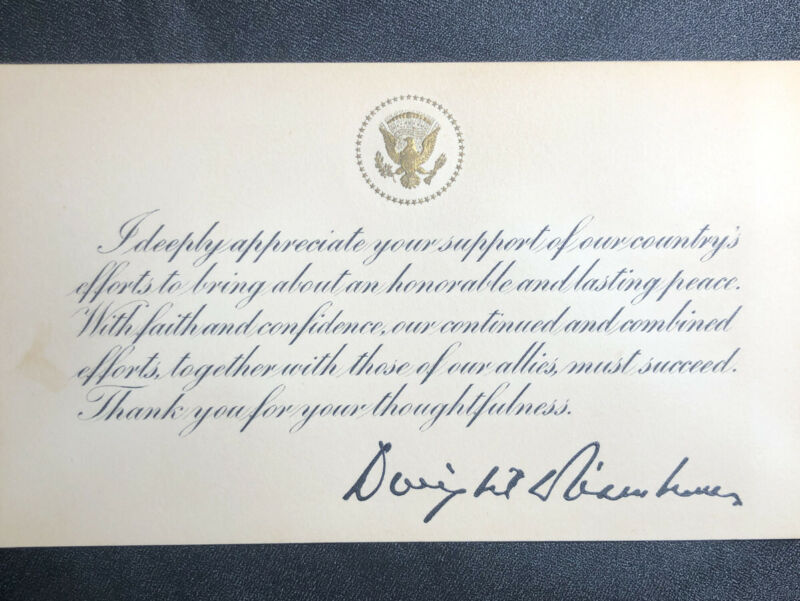 I deeply appreciate your support of our country's
efforts to bring about an honorable and lasting peace.
With faith and confidence, our continued and combined
efforts, together with those of our allies, must succeed.
Thank you for your thoughtfulness.
Dwight D Eisenhower